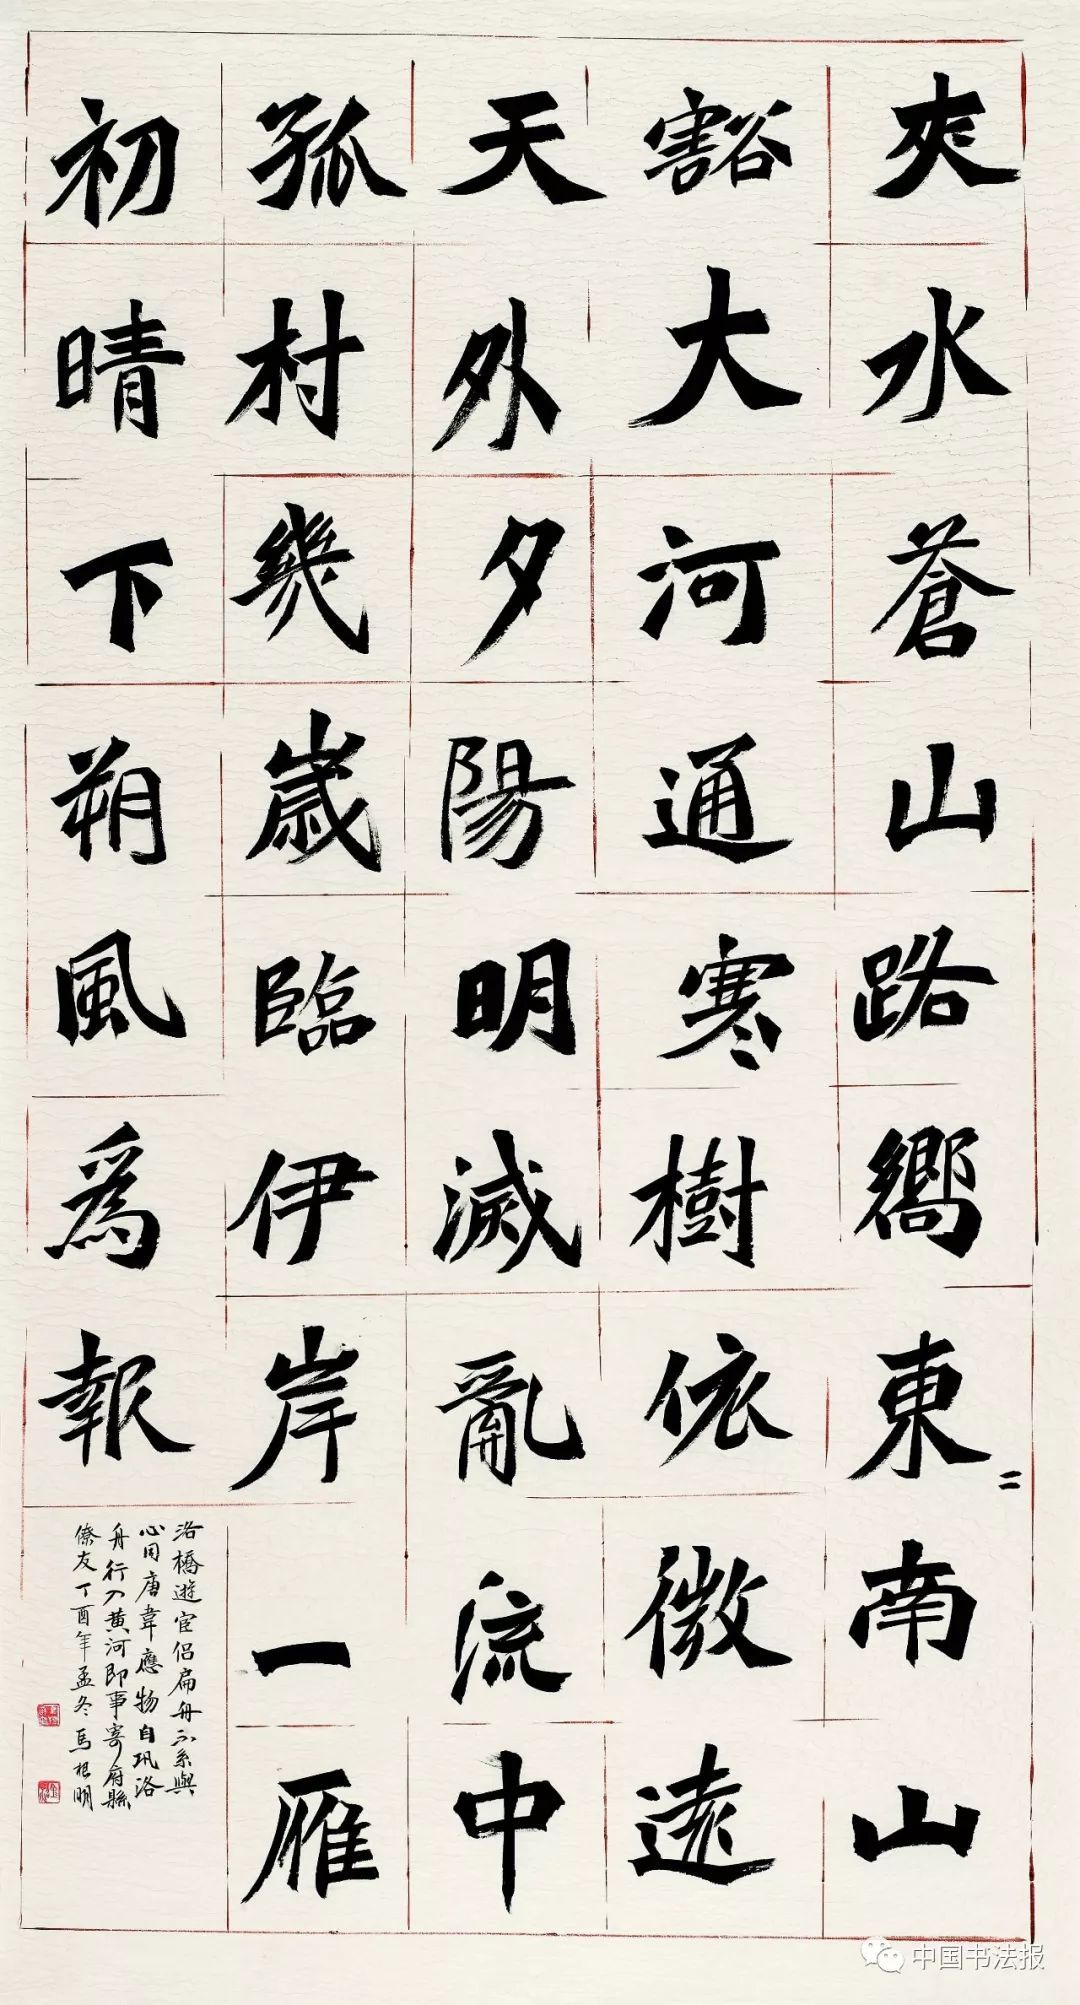 夾水蒼山路嚮東〻南山
豁大河通寒樹依微遠
天外夕陽明滅亂流中
孤村幾歲臨伊岸一雁
初晴下朔風爲報
洛橋遊宦侣扁舟不系與
心同唐韋應物自巩洛
舟行入黄河即事寄府縣
僚友丁酉年孟冬馬根明
中国书法报